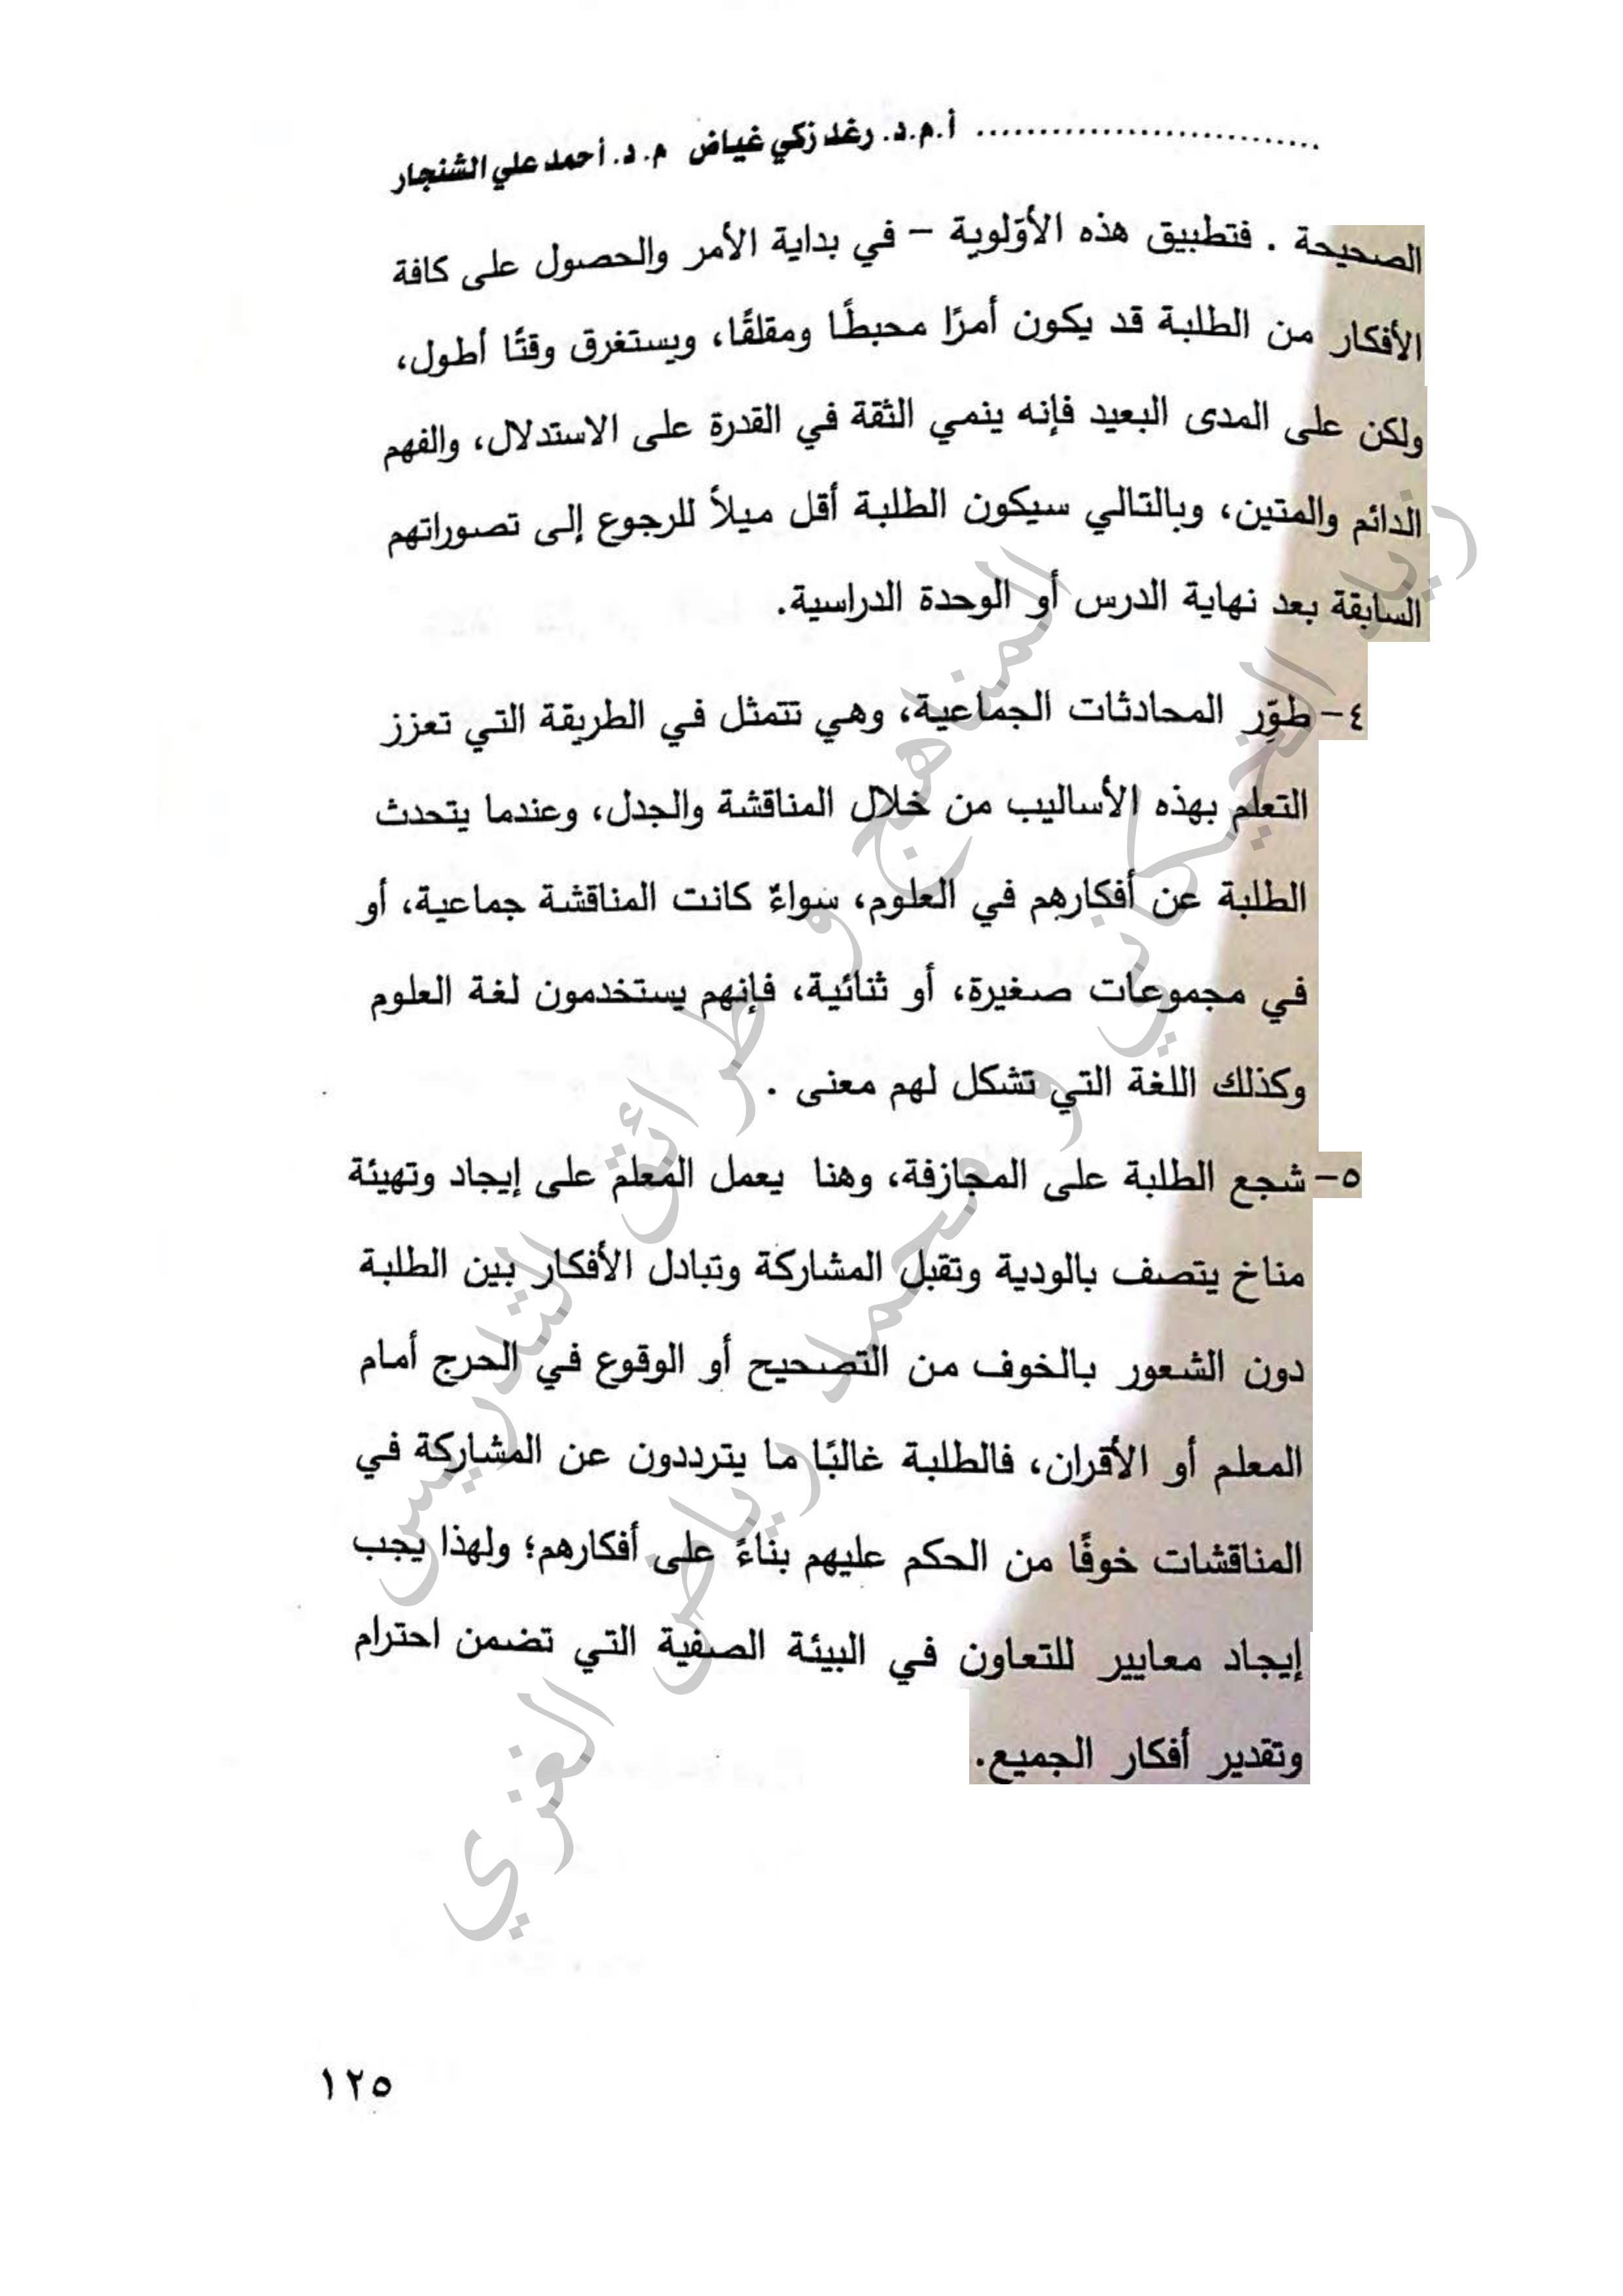 أ.م.د. رغد زكي غياض م.د. أحمد علي الشنجار
الصحيحة . فتطبيق هذه الأوّلوية – في بداية الأمر والحصول على كافة
الأفكار من الطلبة قد يكون أمرًا محبطًا ومقلقًا، ويستغرق وقتًا أطول،
ولكن على المدى البعيد فإنه ينمي الثقة في القدرة على الاستدلال، والفهم
الدائم والمتين، وبالتالي سيكون الطلبة أقل ميلاً للرجوع إلى تصوراتهم
السابقة بعد نهاية الدرس أو الوحدة الدراسية.
٤- طوِّر المحادثات الجماعية، وهي تتمثل في الطريقة التي تعزز
التعلم بهذه الأساليب من خلال المناقشة والجدل، وعندما يتحدث
الطلبة عن أفكارهم في العلوم، سواءٌ كانت المناقشة جماعية، أو
في مجموعات صغيرة، أو ثنائية، فإنهم يستخدمون لغة العلوم
وكذلك اللغة التي تشكل لهم معنى .
٥- شجع الطلبة على المجازفة، وهنا يعمل المعلم على إيجاد وتهيئة
مناخ يتصف بالودية وتقبل المشاركة وتبادل الأفكار بين الطلبة
دون الشعور بالخوف من التصحيح أو الوقوع في الحرج أمام
المعلم أو الأقران، فالطلبة غالبًا ما يترددون عن المشاركة في
المناقشات خوفًا من الحكم عليهم بناءً على أفكارهم؛ ولهذا يجب
إيجاد معايير للتعاون في البيئة الصفية التي تضمن احترام
وتقدير أفكار الجميع.
المناهج و طرائق التدريس
زياد الخيكاني و محمد رياض الغزي
١٢٥